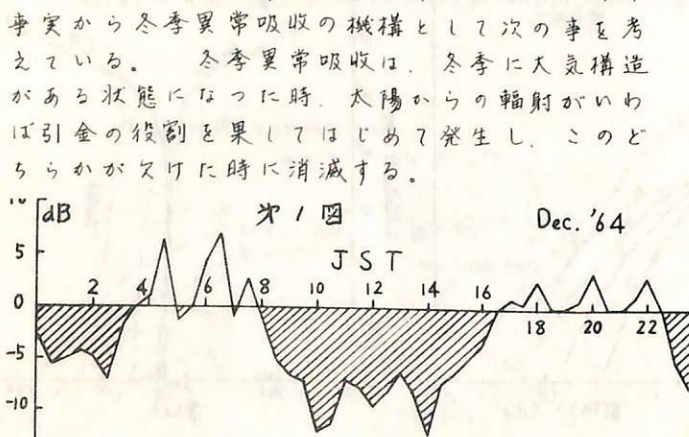 事実から冬季異常吸収の機構として次の事を考
えている。 冬季異常吸収は、冬季に大気構造
がある状態になつた時、太陽からの輻射がいわ
ば引金の役割を果してはじめて発生し、このど
ちらかが欠けた時に消滅する。
dB 第1図 Dec. '64
JST
5
0
-5
-10
2 4 6 8 10 12 14 16 18 20 22